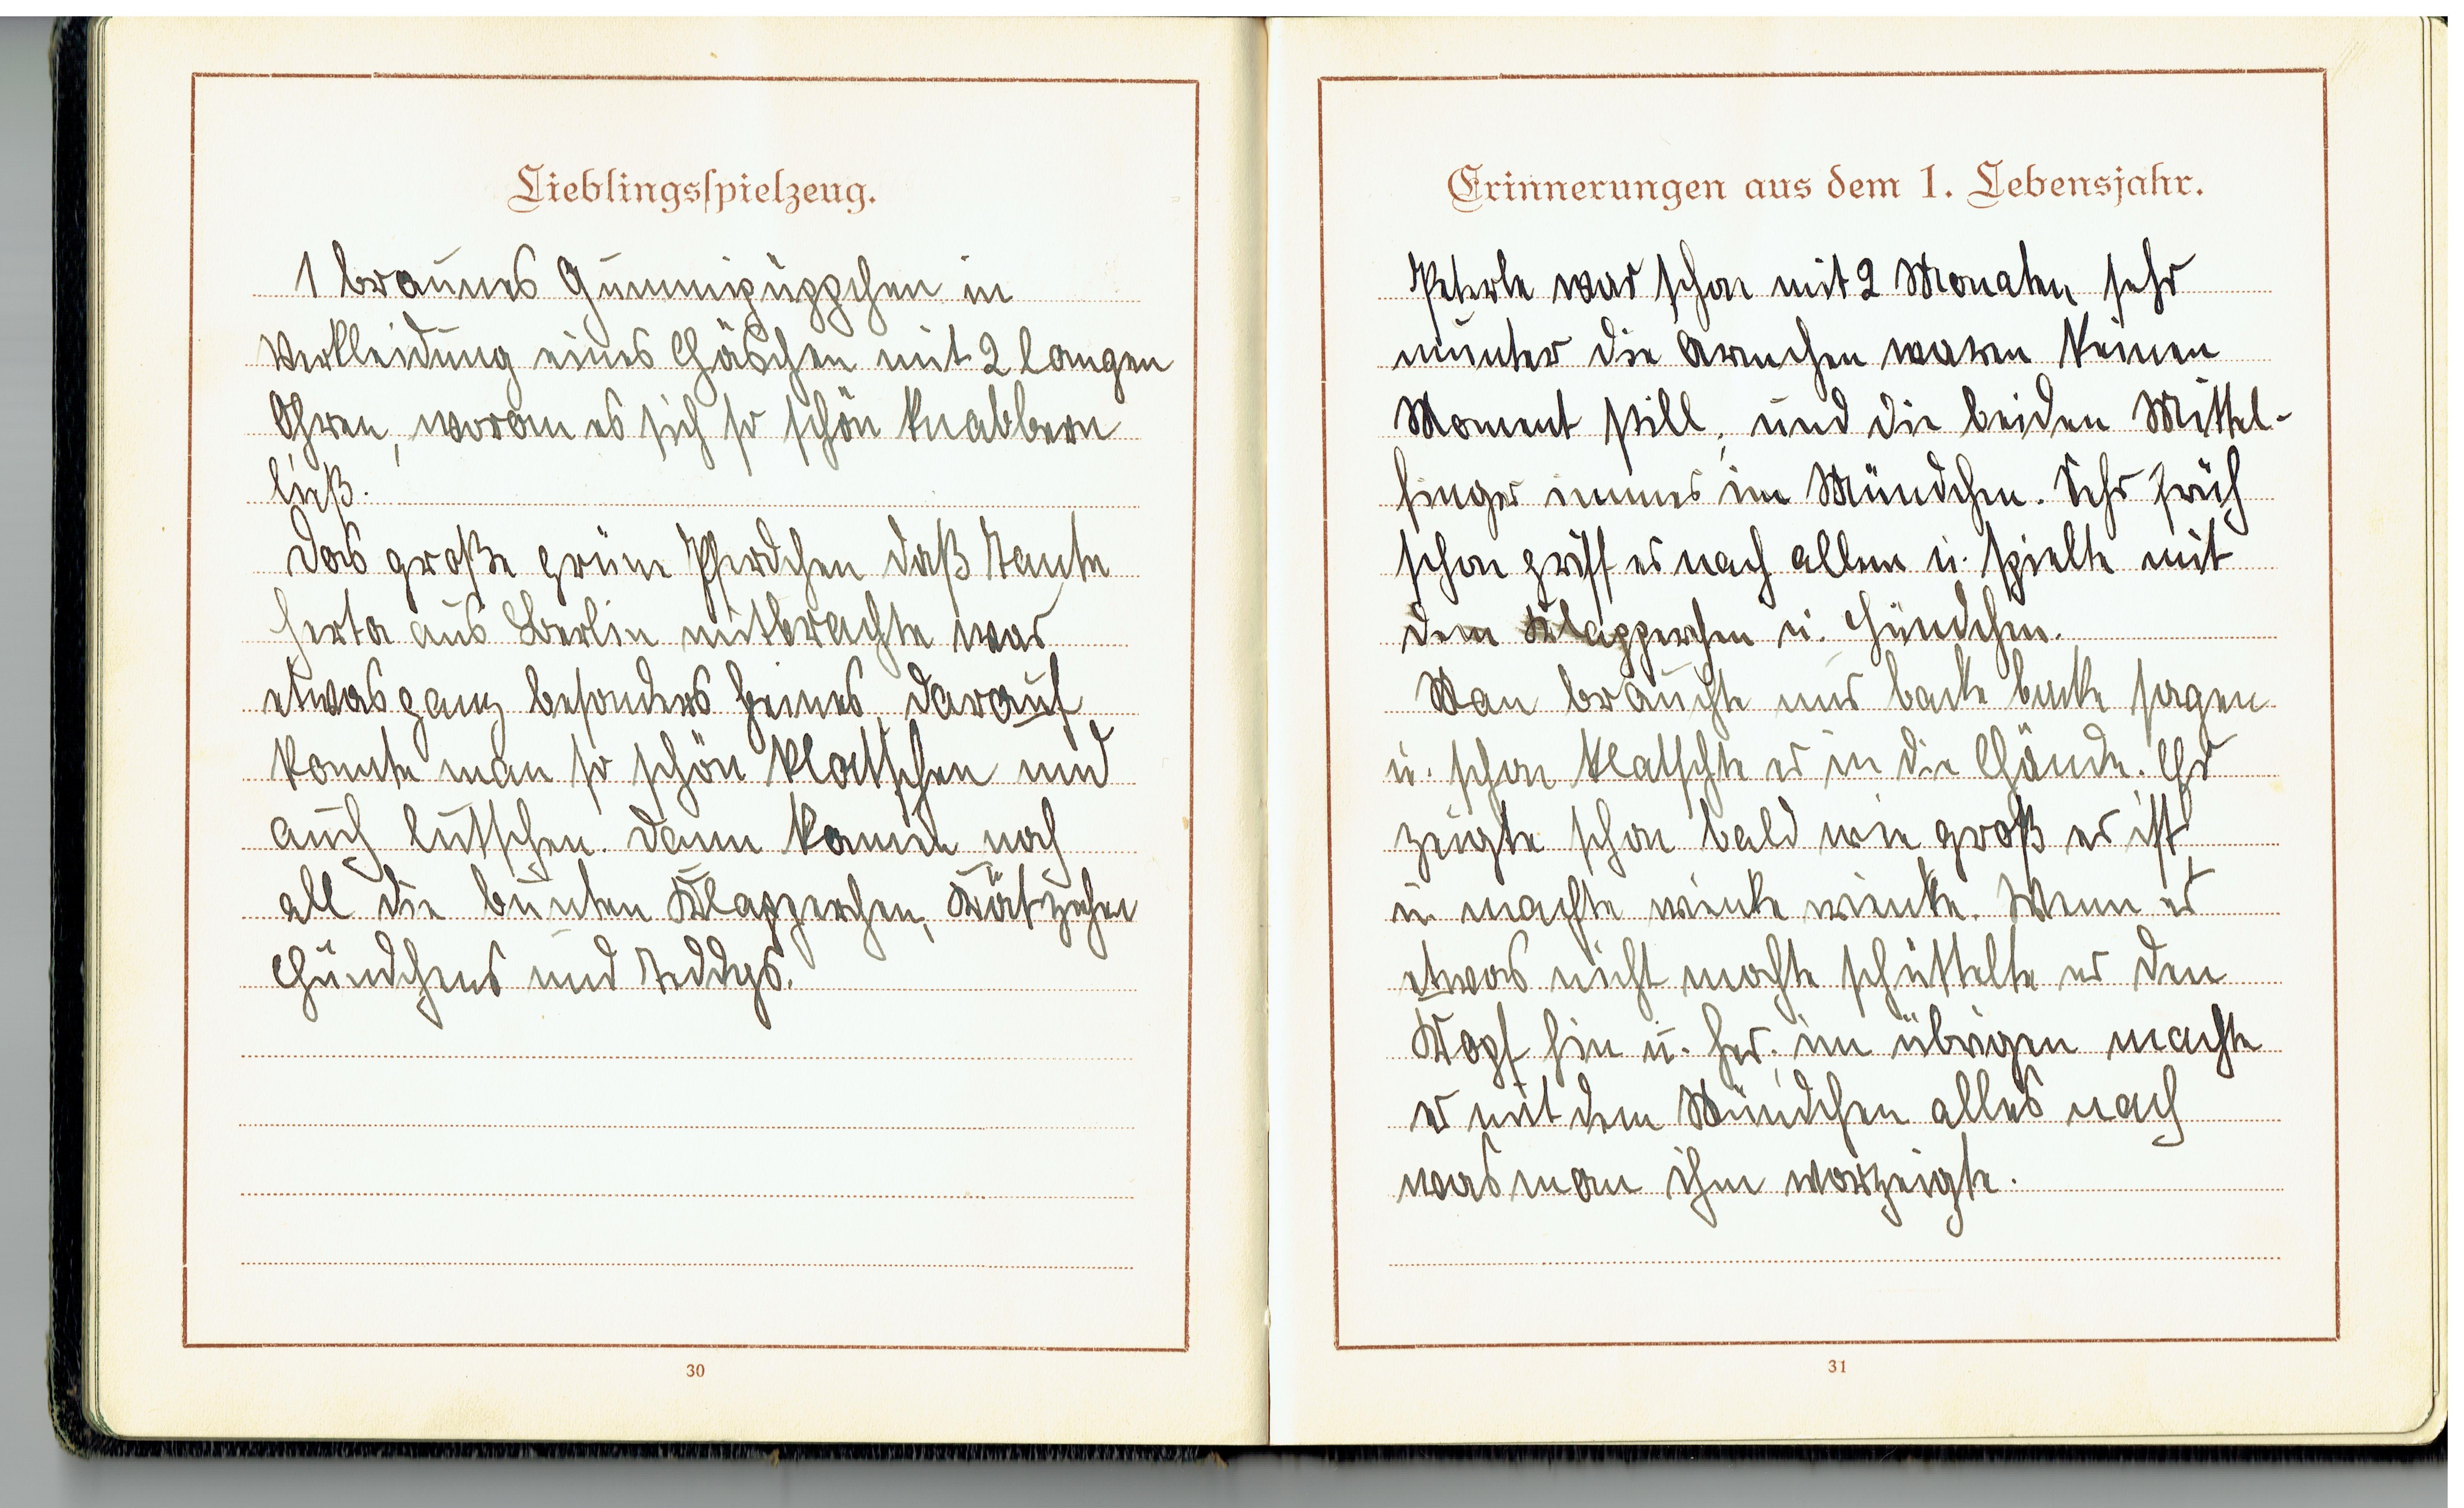 Lieblingsspielzeug.
1 braunes Gummipüppchen in
Verkleidung eines Häschen mit 2 langen
Ohren, woran es sich so schön knabbern
ließ.
Das große grüne Pferdchen daß Tante
Herta aus Berlin mitbrachte war
etwas ganz besonders feines, darauf
konnte man so schön klatschen und
auch lutschen. Dann kamen noch
all die bunten Klapperchen, Kätzchen
Hündchens und Teddys.
30
Erinnerungen aus dem 1. Lebensjahr.
Peterle war schon mit 2 Monaten sehr
munter die Ärmchen waren keinen
Moment still, und die beiden Mittel-
finger immer im Mündchen. Sehr früh
schon griff er nach allem u. spielte mit
dem Klapperchen u. Hündchen.
Man brauchte nur backe backe sagen
u. schon klatschte er in die Hände. Er
zeigte schon bald wie groß er ist,
u. machte winke winke. Wenn er
etwas nicht mochte schüttelte er den
Kopf hin u. her, im übrigen machte
er mit dem Mündchen alles nach
was man ihm vorzeigte.
31